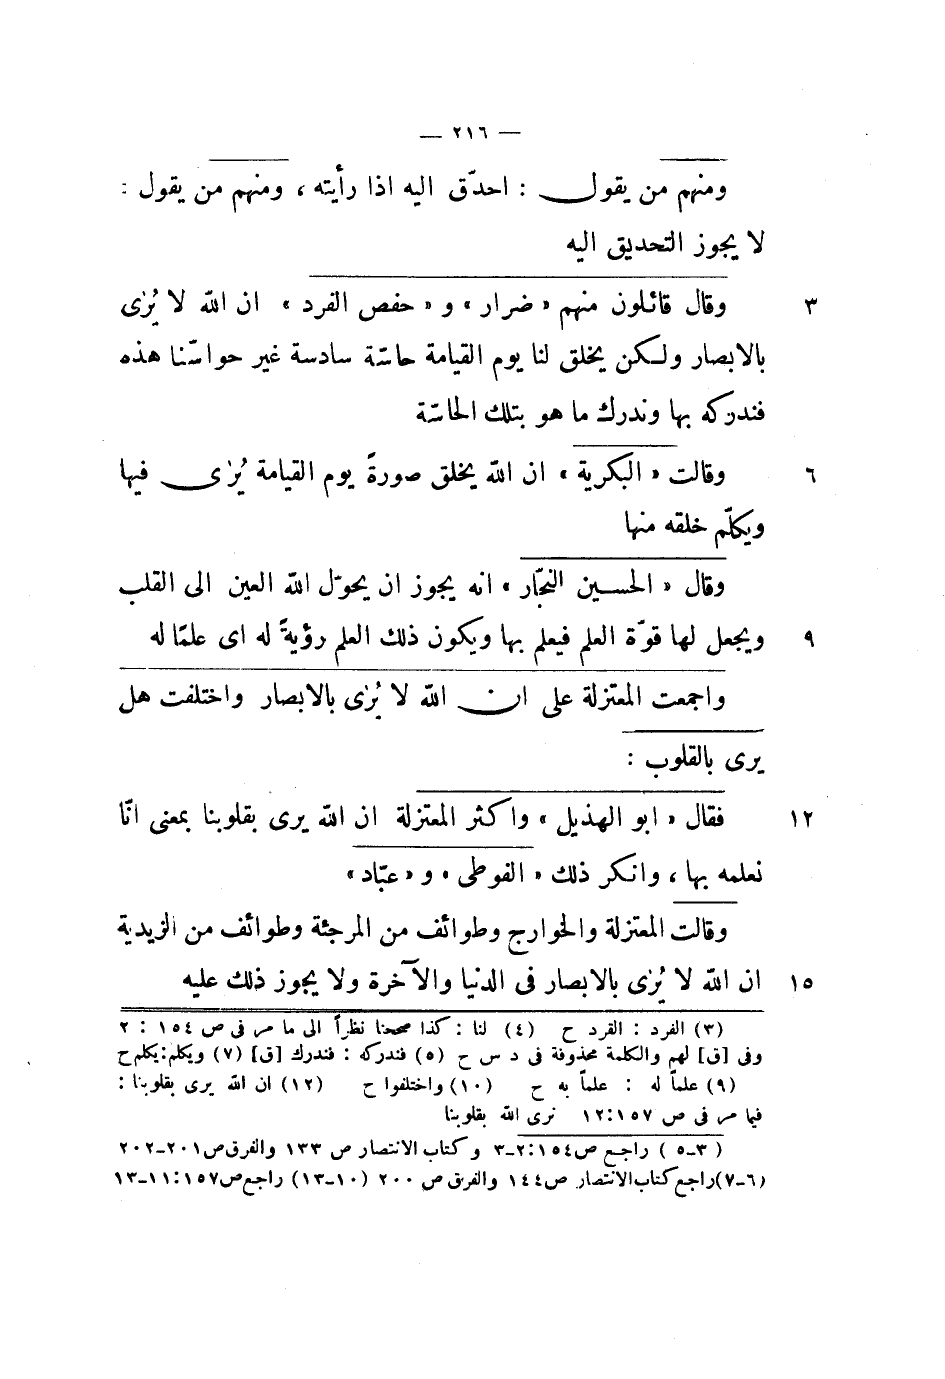 — ٢١٦ —
ومنهم من يقول : احدّق اليه اذا رأيته ، ومنهم من يقول :
لا يجوز التحديق اليه
٣ وقال قائلون منهم « ضرار » و « حفص الفرد » ان الله لا يُرٰى
بالابصار ولكن يخلق لنا يوم القيامة حاسّة سادسة غير حواسّنا هذه
فندركه بها وندرك ما هو بتلك الحاسّة
٦ وقالت « البكرية » ان الله يخلق صورةً يوم القيامة يُرٰى فيها
ويكلّم خلقه منها
وقال « الحسين النجّار » انه يجوز ان يحوّل الله العين الى القلب
٩ ويجعل لها قوّة العلم فيعلم بها ويكون ذلك العلم رؤيةً له اى علمًا له
واجمعت المعتزلة على ان الله لا يُرٰى بالابصار واختلفت هل
يرى بالقلوب :
١٢ فقال « ابو الهذيل » واكثر المعتزلة ان الله يرى بقلوبنا بمعنى انّا
نعلمه بها ، وانكر ذلك « الفوطى » و « عبّاد »
وقالت المعتزلة والخوارج وطوائف من المرجئة وطوائف من الزيدية
١٥ ان الله لا يُرٰى بالابصار فى الدنيا والآخرة ولا يجوز ذلك عليه
(٣) الفرد : القرد ح (٤) لنا : كذا صححنا نظراً الى ما مر فى ص ١٥٤ : ٢
وفى [ق] لهم والكلمة محذوفة فى د س ح (٥) فندركه : فندرك [ق] (٧) ويكلم : يكلم ح
(٩) علماً له : علماً به ح (١٠) واختلفوا ح (١٢) ان الله يرى بقلوبنا :
فيما مر فى ص ١٥٧:١٢ نرى الله بقلوبنا
(٣-٥) راجع ص ١٥٤:٢-٣ وكتاب الانتصار ص ١٣٣ والفرق ص ٢٠١-٢٠٢
(٦-٧) راجع كتاب الانتصار ص ١٤٤ والفرق ص ٢٠٠ (١٠-١٣) راجع ص ١٥٧:١١-١٣